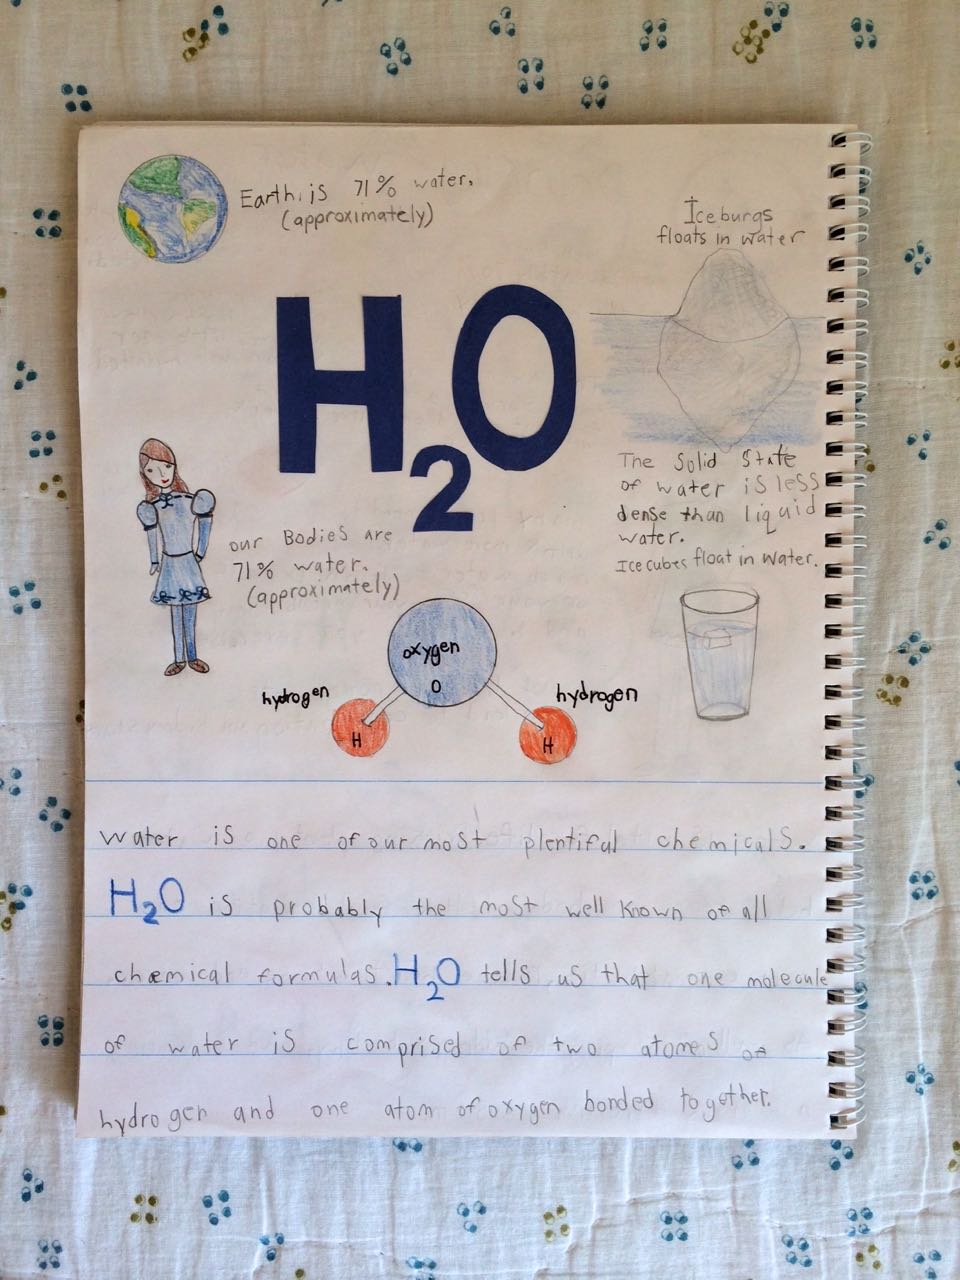 Earth is 71% water.
(approximately)
Iceburgs
floats in water
H2O
The Solid State
of water is less
dense than liquid
water.
Ice cubes float in water.
our Bodies are
71% water.
(approximately)
oxygen
O
hydrogen
hydrogen
H
H
water is one of our most plentiful chemicals.
H2O is probably the most well known of all
chemical formulas. H2O tells us that one molecule
of water is comprised of two atomes of
hydrogen and one atom of oxygen bonded together.